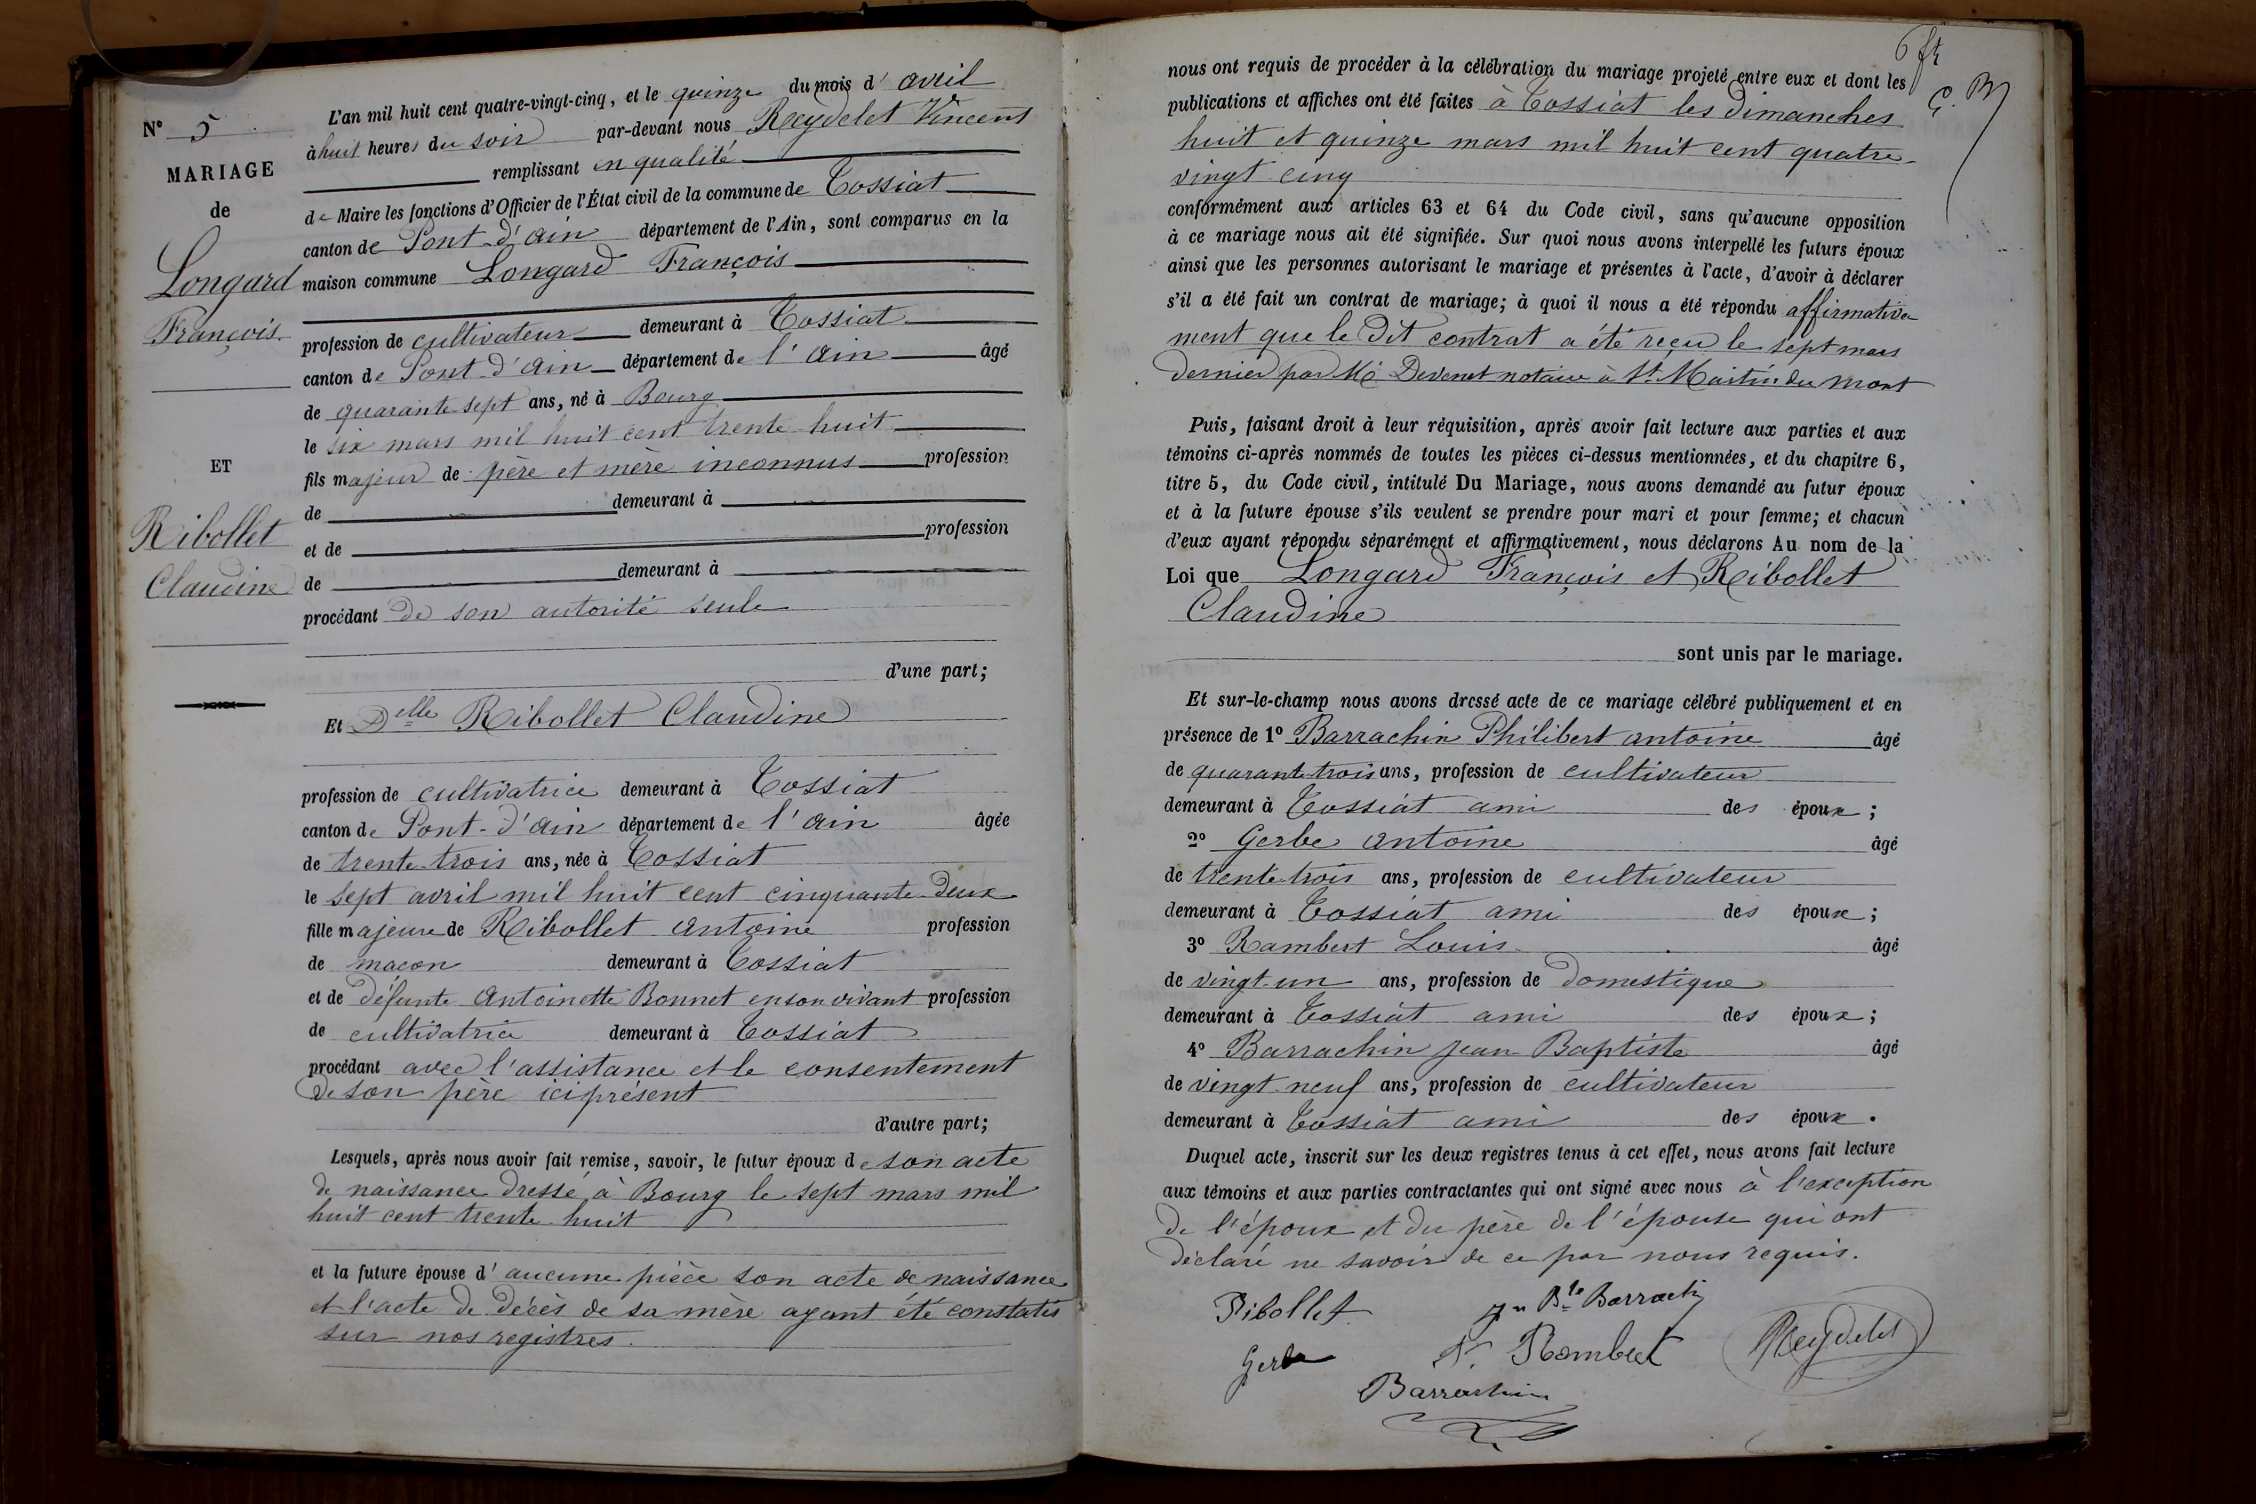 N° 5
MARIAGE
de
Longard
François
ET
Ribollet
Claudine
L'an mil huit cent quatre-vingt-cinq, et le quinze du mois d'avril
à huit heures du soir par-devant nous Reydelet Vincent
remplissant en qualité
de Maire les fonctions d'Officier de l'État civil de la commune de Tossiat
canton de Pont-d'ain département de l'Ain, sont comparus en la
maison commune Longard François
profession de cultivateur demeurant à Tossiat
canton de Pont-d'ain département de l'ain âgé
de quarante-sept ans, né à Bourg
le six mars mil huit cent trente-huit
fils majeur de père et mère inconnus profession
de demeurant à
et de profession
de demeurant à
procédant de son autorité seule
d'une part;
Et Delle Ribollet Claudine
profession de cultivatrice demeurant à Tossiat
canton de Pont-d'ain département de l'ain âgée
de trente-trois ans, née à Tossiat
le sept avril mil huit cent cinquante-deux
fille majeure de Ribollet Antoine profession
de macon demeurant à Tossiat
et de défunte Antoinette Bonnet en son vivant profession
de cultivatrice demeurant à Tossiat
procédant avec l'assistance et le consentement
de son père ici présent
d'autre part;
Lesquels, après nous avoir fait remise, savoir, le futur époux de son acte
de naissance dressé à Bourg le sept mars mil
huit cent trente-huit
et la future épouse d'aucune pièce son acte de naissance
et l'acte de décès de sa mère ayant été constatés
sur nos registres.
6 ft
G. B
nous ont requis de procéder à la célébration du mariage projeté entre eux et dont les
publications et affiches ont été faites à Tossiat les dimanches
huit et quinze mars mil huit cent quatre-
vingt cinq
conformément aux articles 63 et 64 du Code civil, sans qu'aucune opposition
à ce mariage nous ait été signifiée. Sur quoi nous avons interpellé les futurs époux
ainsi que les personnes autorisant le mariage et présentes à l'acte, d'avoir à déclarer
s'il a été fait un contrat de mariage; à quoi il nous a été répondu affirmative
ment que le dit contrat a été reçu le sept mars
dernier par Me Devenet notaire à St. Martin du Mont
Puis, faisant droit à leur réquisition, après avoir fait lecture aux parties et aux
témoins ci-après nommés de toutes les pièces ci-dessus mentionnées, et du chapitre 6,
titre 5, du Code civil, intitulé Du Mariage, nous avons demandé au futur époux
et à la future épouse s'ils veulent se prendre pour mari et pour femme; et chacun
d'eux ayant répondu séparément et affirmativement, nous déclarons Au nom de la
Loi que Longard François et Ribollet
Claudine
sont unis par le mariage.
Et sur-le-champ nous avons dressé acte de ce mariage célébré publiquement et en
présence de 1° Barrachin Philibert antoine âgé
de quarante-trois ans, profession de cultivateur
demeurant à Tossiat ami des époux;
2° Gerbe antoine âgé
de trente-trois ans, profession de cultivateur
demeurant à Tossiat ami des époux;
3° Rambert Louis âgé
de vingt-un ans, profession de domestique
demeurant à Tossiat ami des époux;
4° Barrachin Jean Baptiste âgé
de vingt neuf ans, profession de cultivateur
demeurant à Tossiat ami des époux.
Duquel acte, inscrit sur les deux registres tenus à cet effet, nous avons fait lecture
aux témoins et aux parties contractantes qui ont signé avec nous à l'exception
de l'époux et du père de l'épouse qui ont
déclaré ne savoir de ce par nous requis.
Ribollet Jn Bte Barrachin
Gerbe Rambert Reydelet
Barrachin